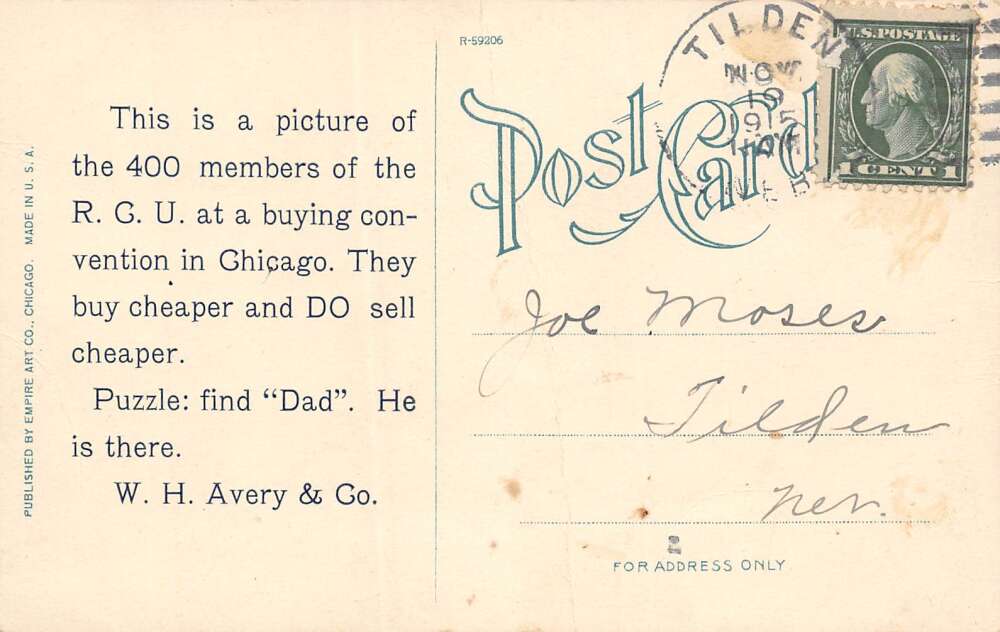 R-59206
TILDEN
NOV
19
1915
NEB
U.S. POSTAGE
1 CENT 1
Post Card
This is a picture of
the 400 members of the
R. C. U. at a buying con-
vention in Chicago. They
buy cheaper and DO sell
cheaper.
Puzzle: find “Dad”. He
is there.
W. H. Avery & Co.
PUBLISHED BY EMPIRE ART CO., CHICAGO. MADE IN U. S. A.
Joe Moses
Tilden
Neb.
FOR ADDRESS ONLY